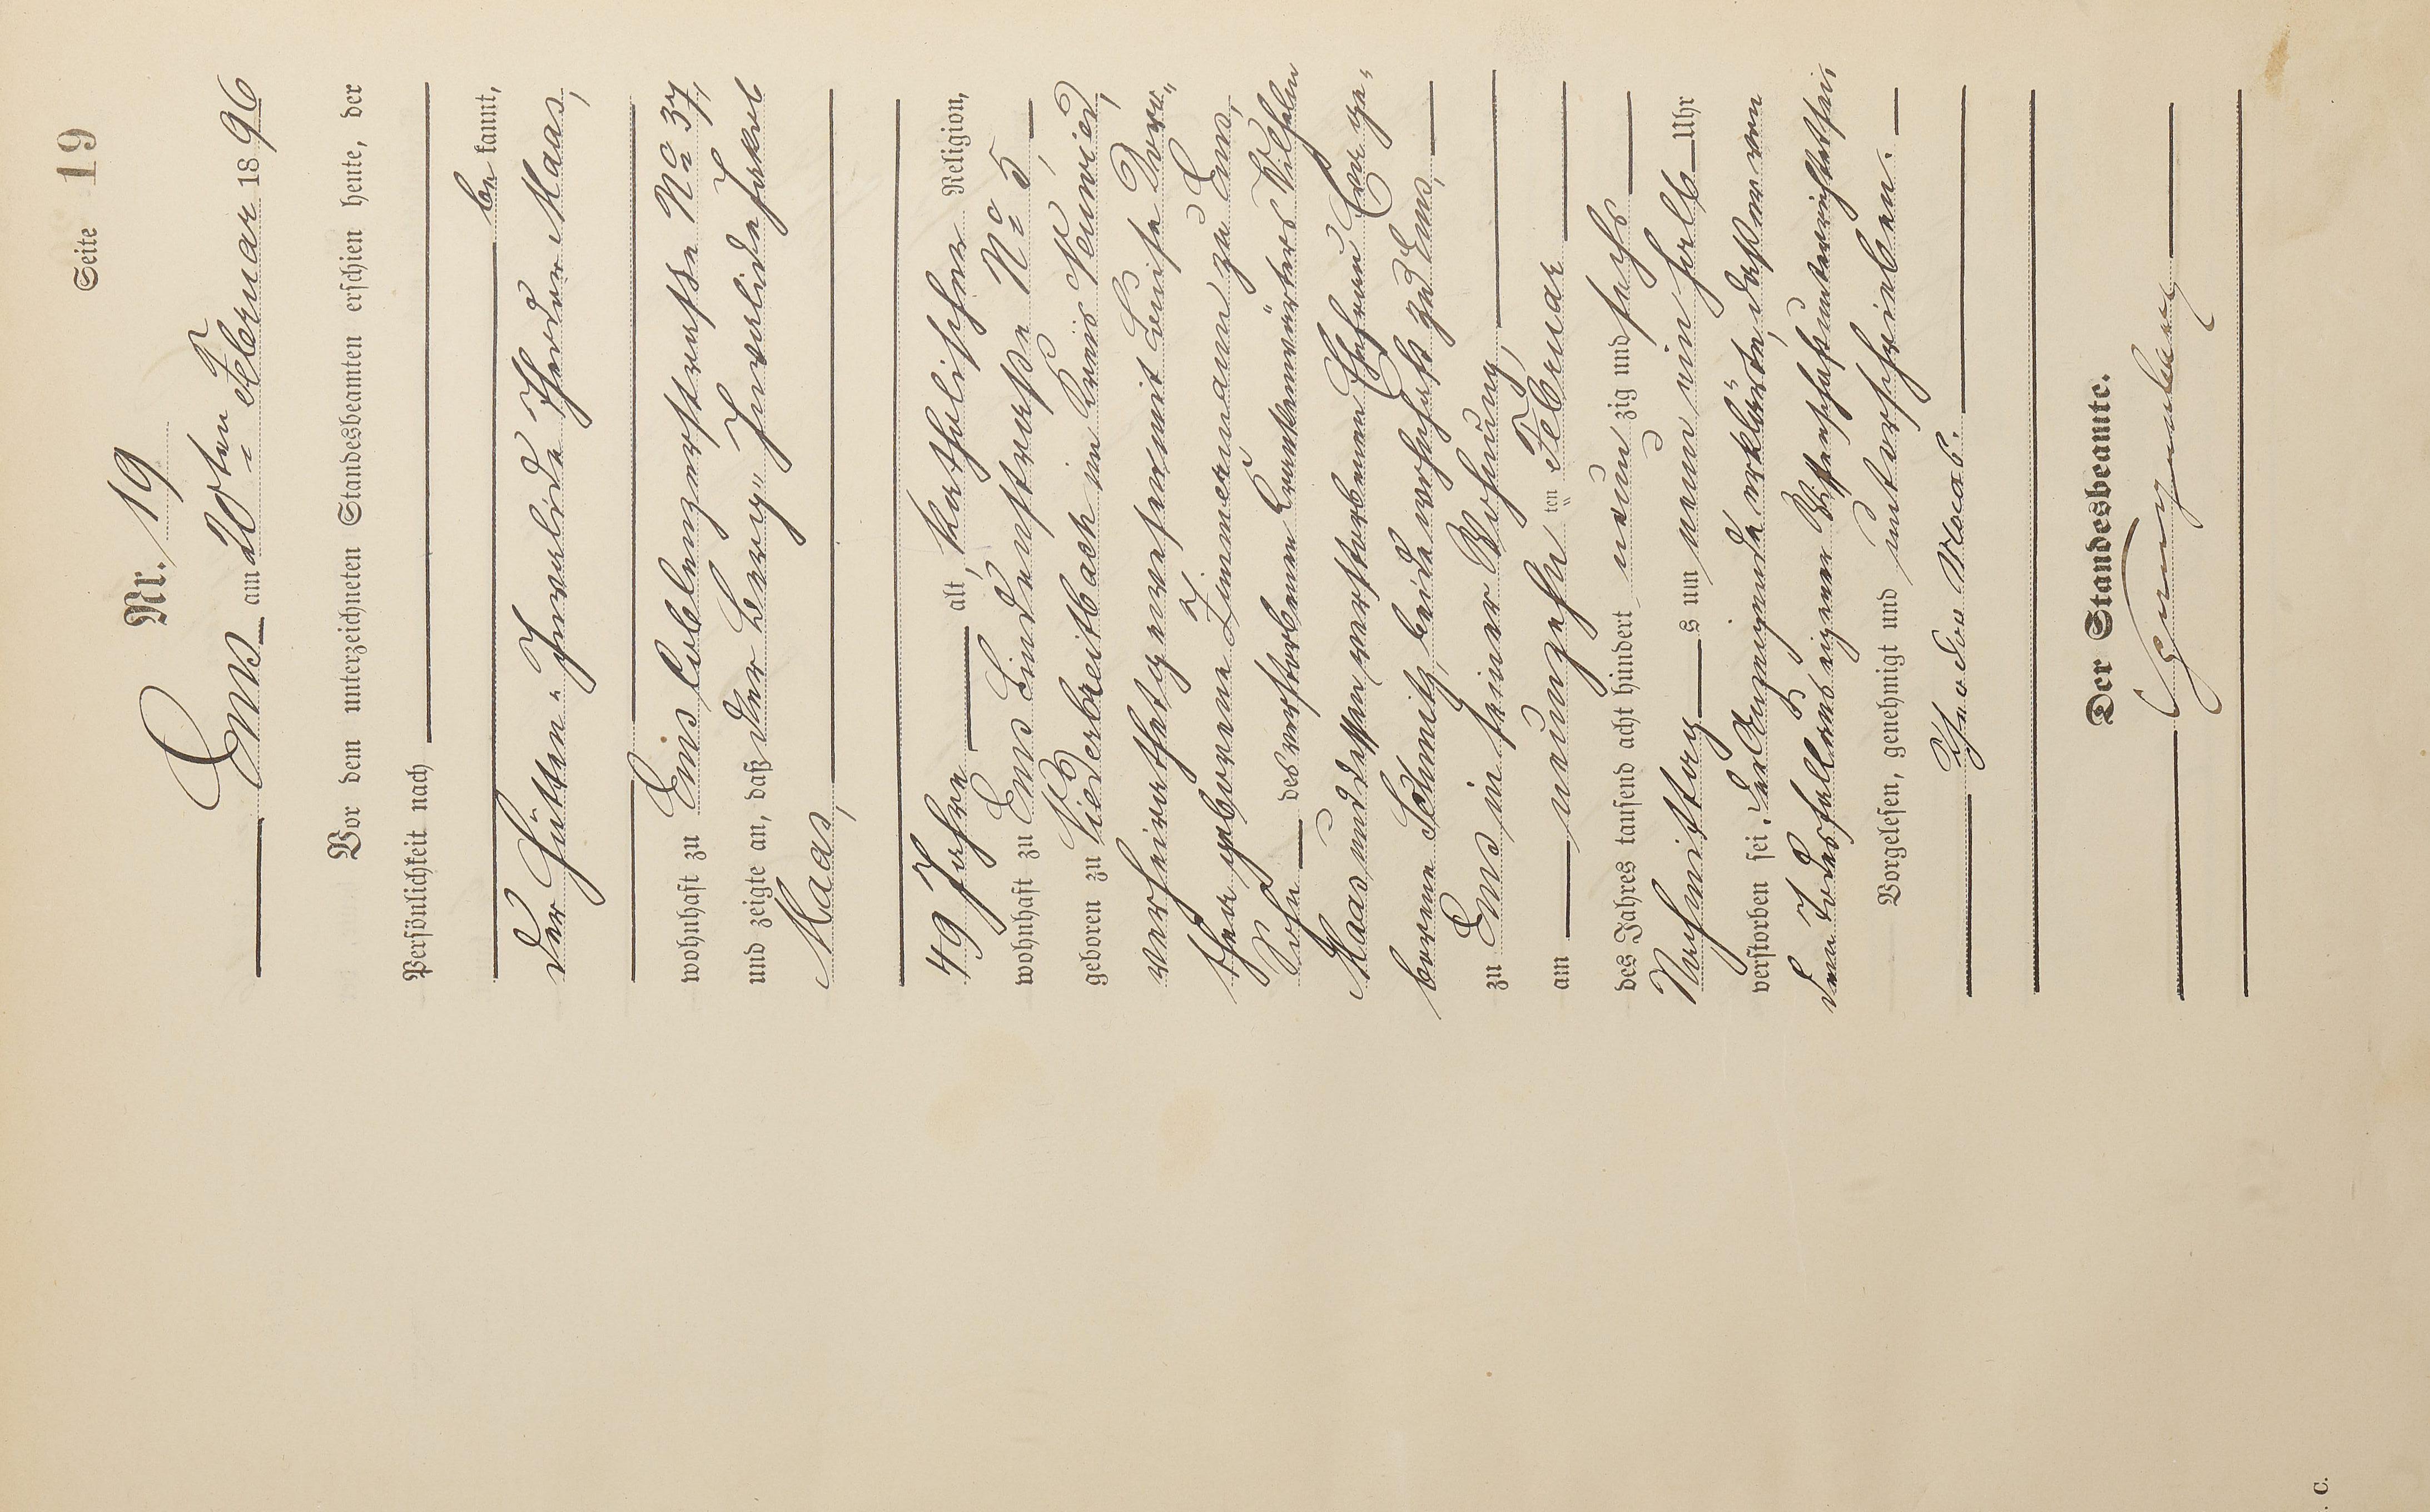 Seite 19
Nr. 19
Ems am 20ten Februar 1896
Vor dem unterzeichneten Standesbeamten erschien heute, der
Persönlichkeit nach
bekannt,
der Hütten-Invalide Theodor Maas,
wohnhaft zu Ems Coblenzerstrasse No 37,
und zeigte an, daß der Berg-Invalide Jakob
Maas,
49 Jahre alt, katholischer Religion,
wohnhaft zu Ems Lindenstrasse No 5,
geboren zu Niederbreitbach im Kreis Neuwied,
verheirathet gewesen mit Louise Doro-
thea geborene Zimmermann zu Ems,
Sohn des verstorbenen Krankenwärters Wilhelm
Maas und dessen verstorbenen Ehefrau Eva ge-
borene Schmitz, beide wohnhaft zu Ems,
zu Ems in seiner Wohnung,
am neunzehn ten Februar
des Jahres tausend acht hundert neunzig und sechs
Nachmittags um neun ein halb Uhr
verstorben sei. Der Anzeigende erklärte, daß er von
dem Todesfall aus eigener Wissenschaft unterrichtet sei.
Vorgelesen, genehmigt und unterschrieben.
Theodor Maas.
Der Standesbeamte.
C.